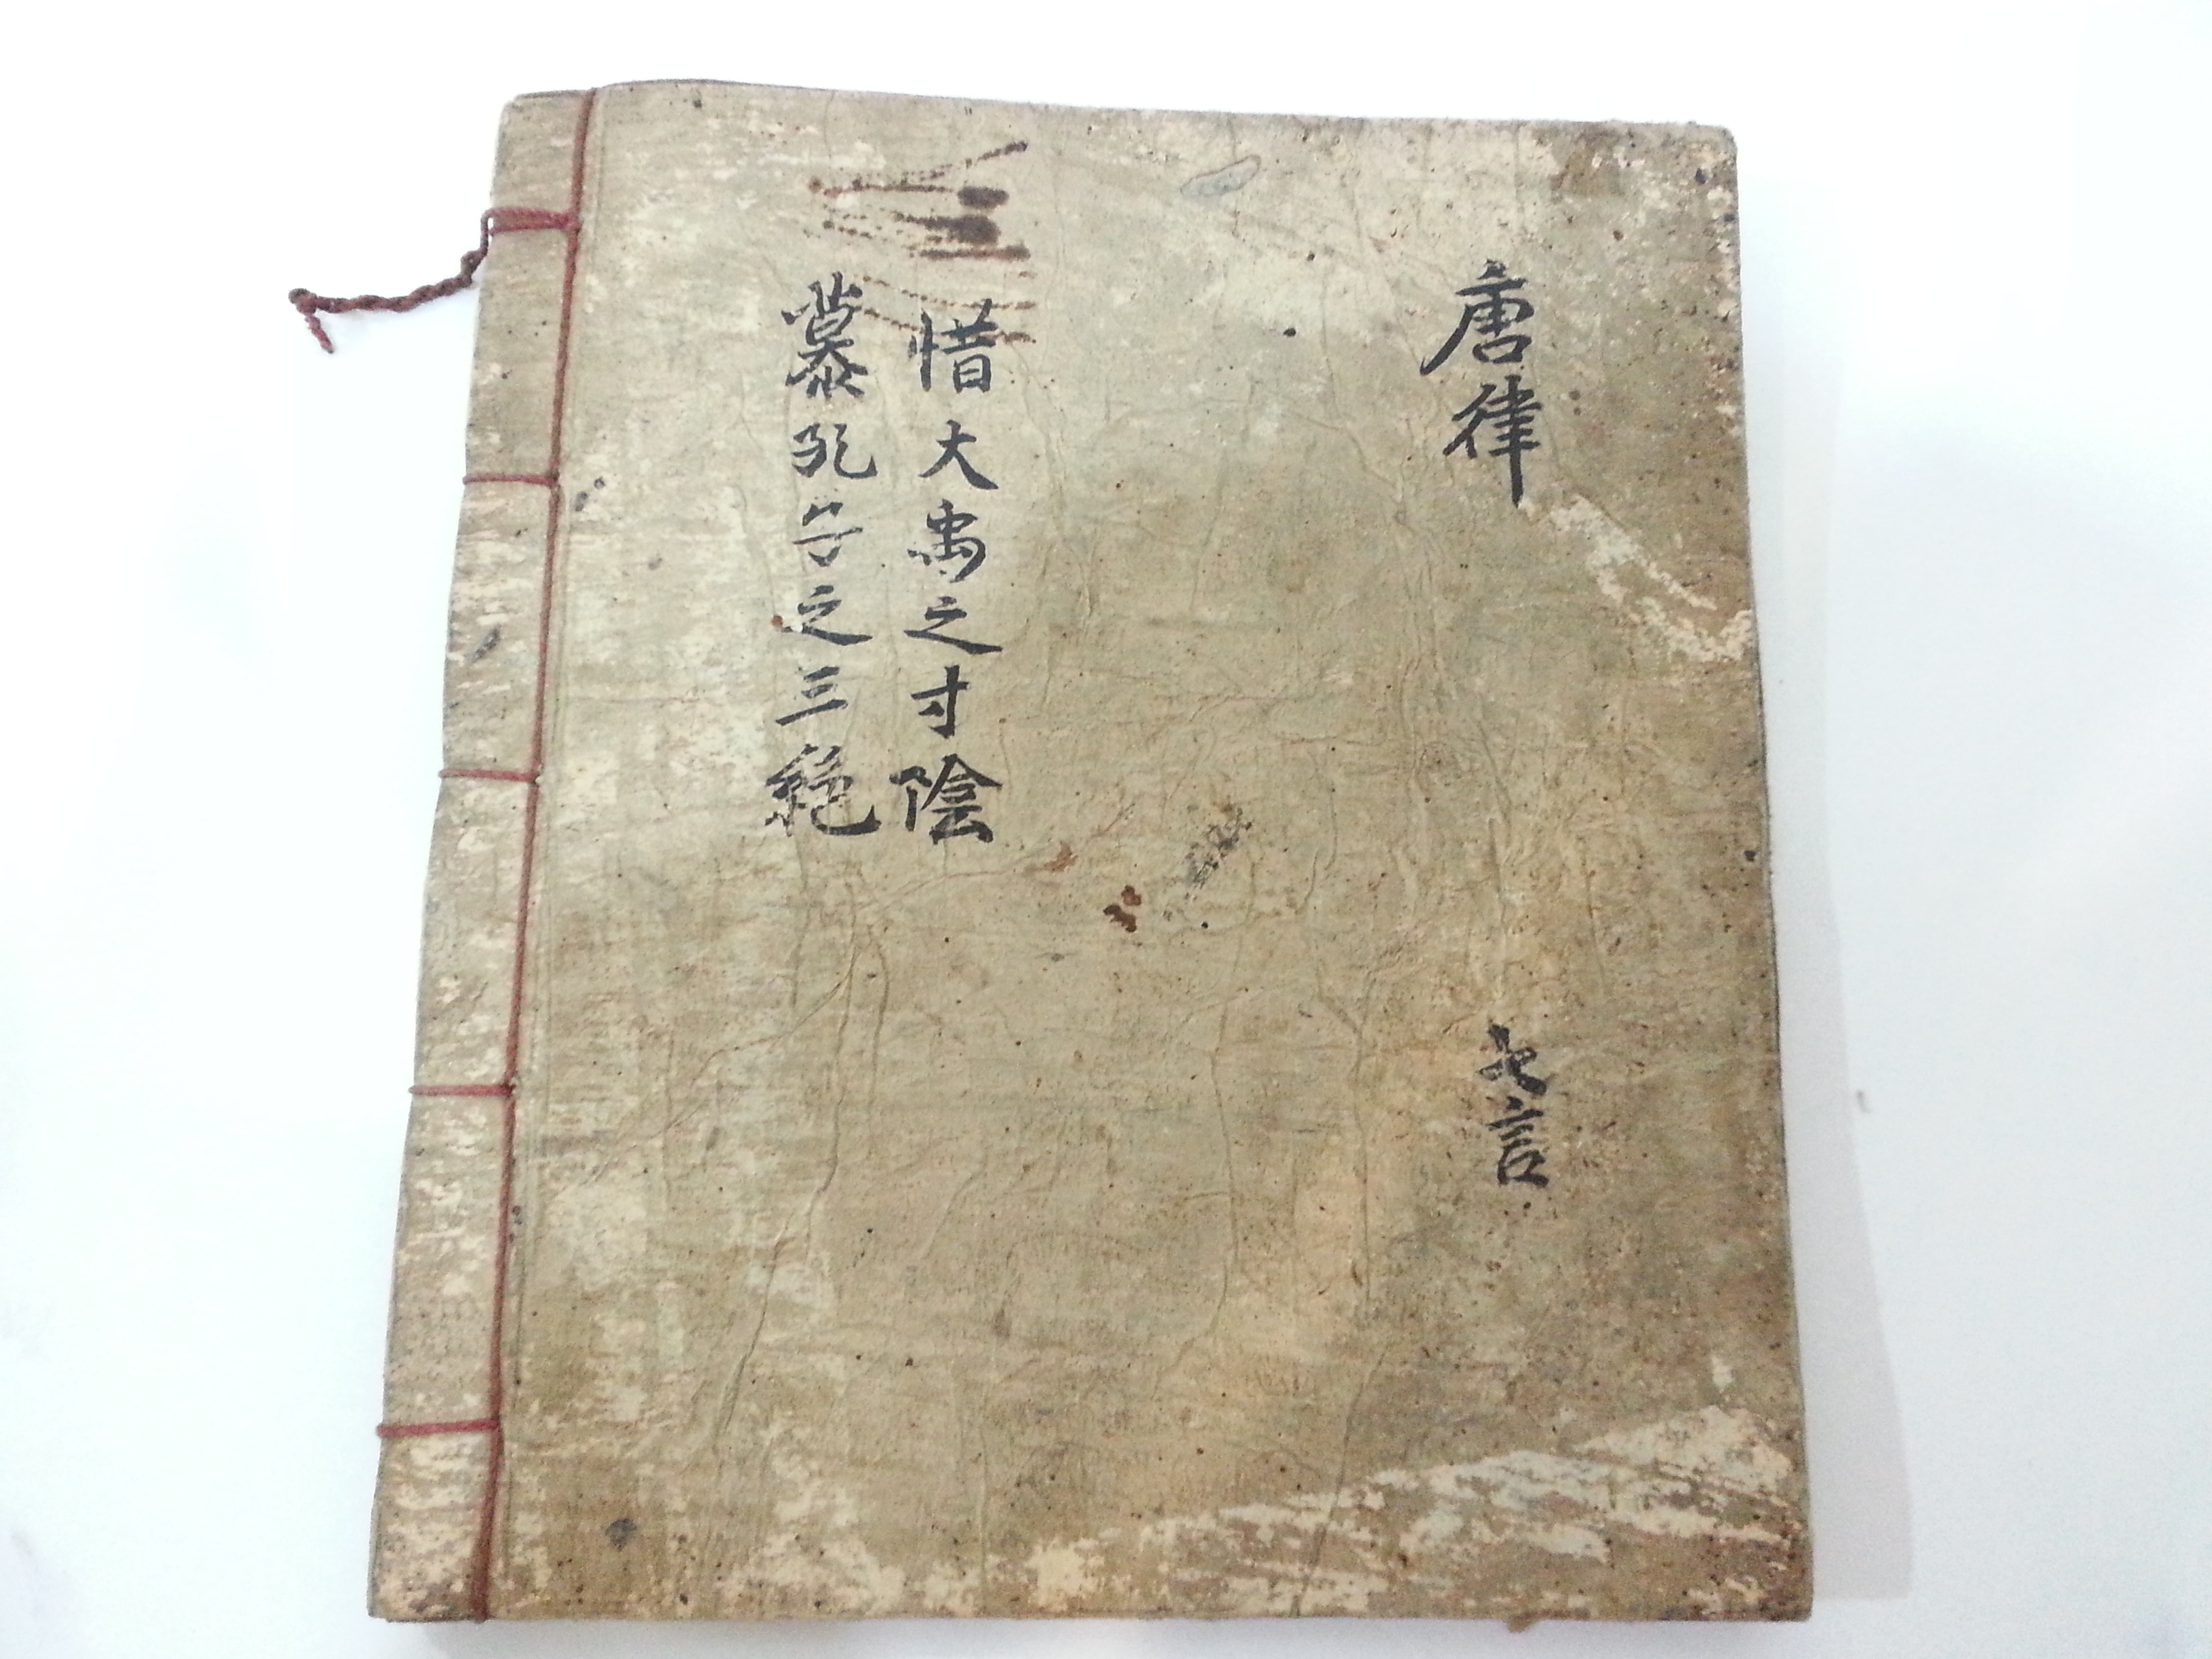 唐律
七言
惜大禹之寸陰
慕孔子之三絶